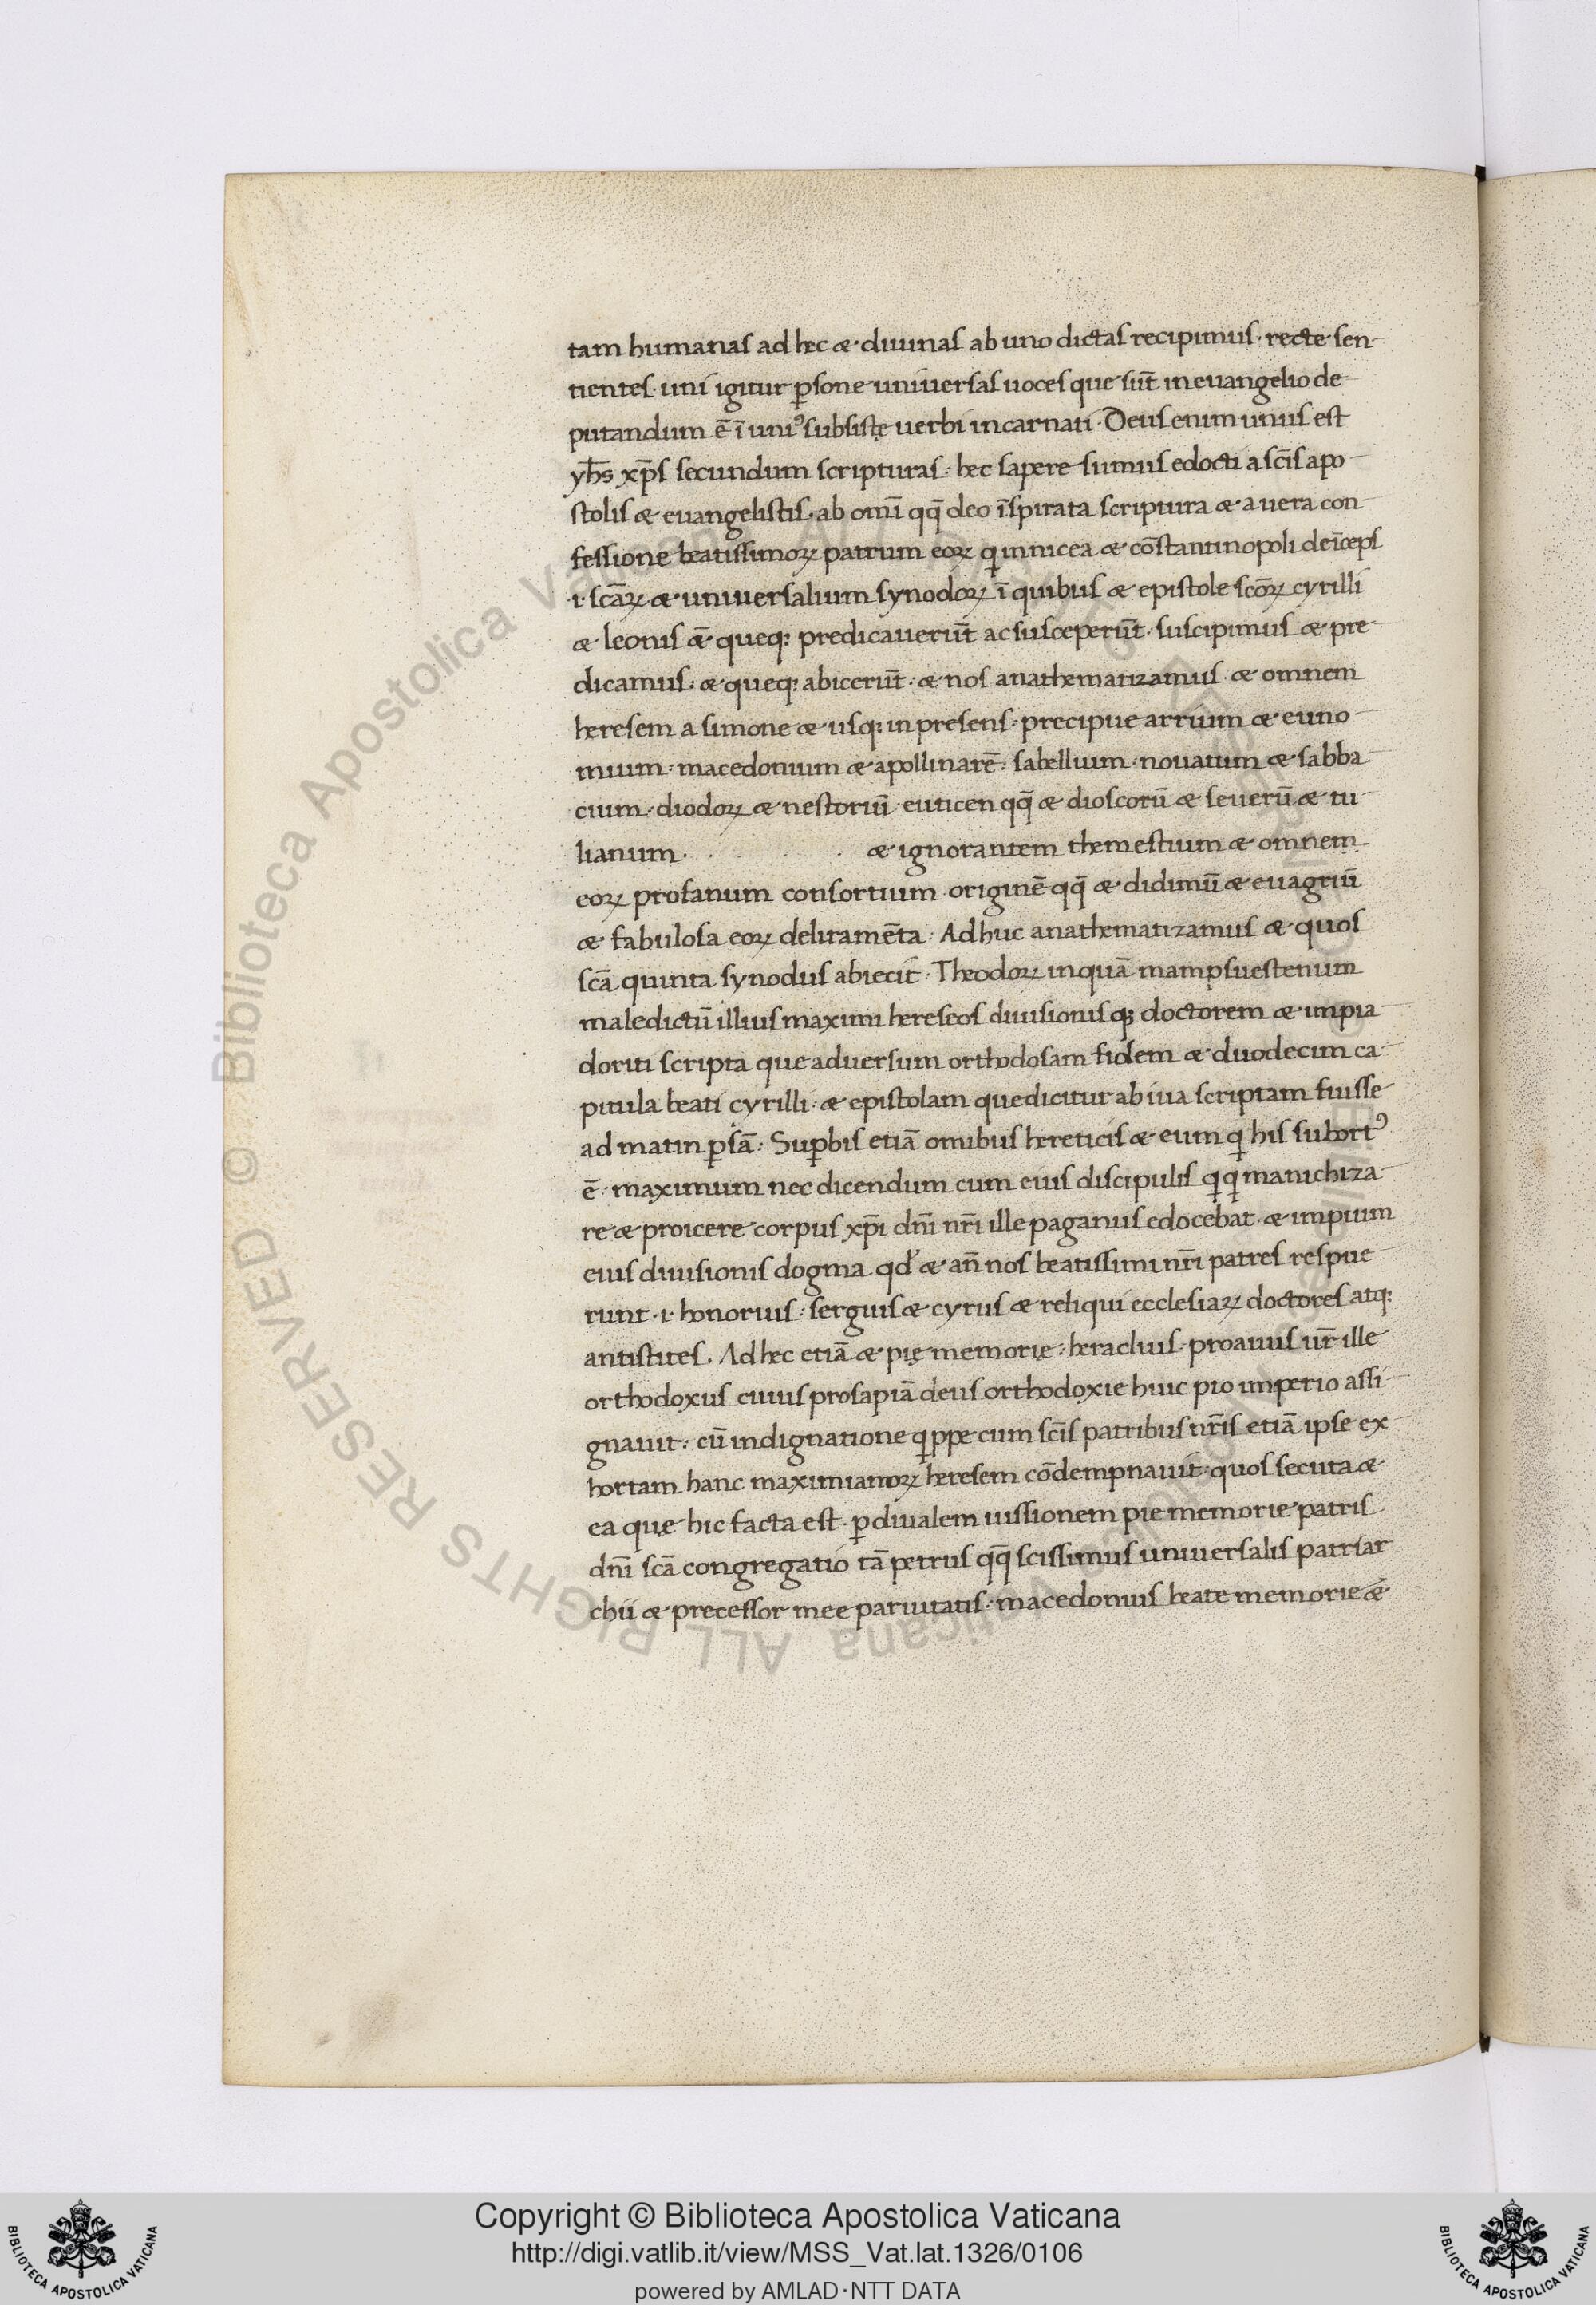 tam humanas ad hec æ diuinas ab uno dictas recipimus · recte sen
tientes · uni igitur p̱sone uniuersas uoces que sūt in euangelio de
putandum ē ī uniꝰ subsistę uerbi incarnati · Deus enim unus est
yh̄s xp̄s secundum scripturas · hec sapere sumus edocti a sc̄is apo
stolis æ euangelistis · ab om̄i qq̄ deo īspirata scriptura æ a uera con
fessione beatissimoꝝ patrum eoꝝ qi in nicea æ cōstantinopoli deīceps
·i· scāꝝ æ uniuersalium synodoꝝ ī quibus æ epistole scōꝝ cyrilli
æ leonis ǣ queq: predicauerūt ac susceperūt · suscipimus æ pre
dicamus : æ queq: abicerūt : æ nos anathematizamus · æ omnem
heresem a simone æ usq: in presens · precipue arrium æ euno
mium · macedonium æ apollinarē · sabellium · nouatum æ sabba
cium · diodoꝝ æ nestoriū · euticen qq̄ æ dioscorū æ seuerū æ iu
lianum · · · · · æ ignorantem themestium æ omnem
eoꝝ profanum consortium · originē qq̄ æ didimū æ euagriū
æ fabulosa eoꝝ deliramēta : Adhuc anathematizamus æ quos
scā quinta synodus abiecit · Theodoꝝ inquā mampsuestenum
maledictū illius maximi hereseos diuisionis q; doctorem æ impia
doriti scripta que aduersum orthodosam fidem æ duodecim ca
pitula beati cyrilli · æ epistolam que dicitur ab iua scriptam fuisse
ad matin p̱sā : Sup̱bis etiā omibus hereticis æ eum qi his subortꝰ
ē · maximum nec dicendum cum eius discipulis qi qi manichiza
re æ proicere corpus xp̄i dn̄i nr̄i ille paganus edocebat · æ impium
eius diuisionis dogma qd' æ an̄ nos beatissimi nr̄i patres respue
runt · i · honorius · sergius æ cyrus æ reliqui ecclesiaꝝ doctores atq:
antistites . Ad hec etiā æ pię memorię : heraclius · proauus ur̄ ille
orthodoxus cuius prosapiā deus orthodoxie huic pio imperio assi
gnauit : cū indignatione qippe cum sc̄is patribus nr̄is etiā ipse ex
hortam hanc maximianoꝝ heresem cōdempnauit · quos secuta æ
ea quę hic facta est · p̱ diualem iussionem pie memorie patris
dn̄i scā congregatio tā petrus qq̄ scissimus uniuersalis patriar
chii æ precessor mee paruitatis · macedonius beate memorie ǣ
Copyright © Biblioteca Apostolica Vaticana
http://digi.vatlib.it/view/MSS_Vat.lat.1326/0106
powered by AMLAD·NTT DATA
BIBLIOTECA APOSTOLICA VATICANA
BIBLIOTECA APOSTOLICA VATICANA